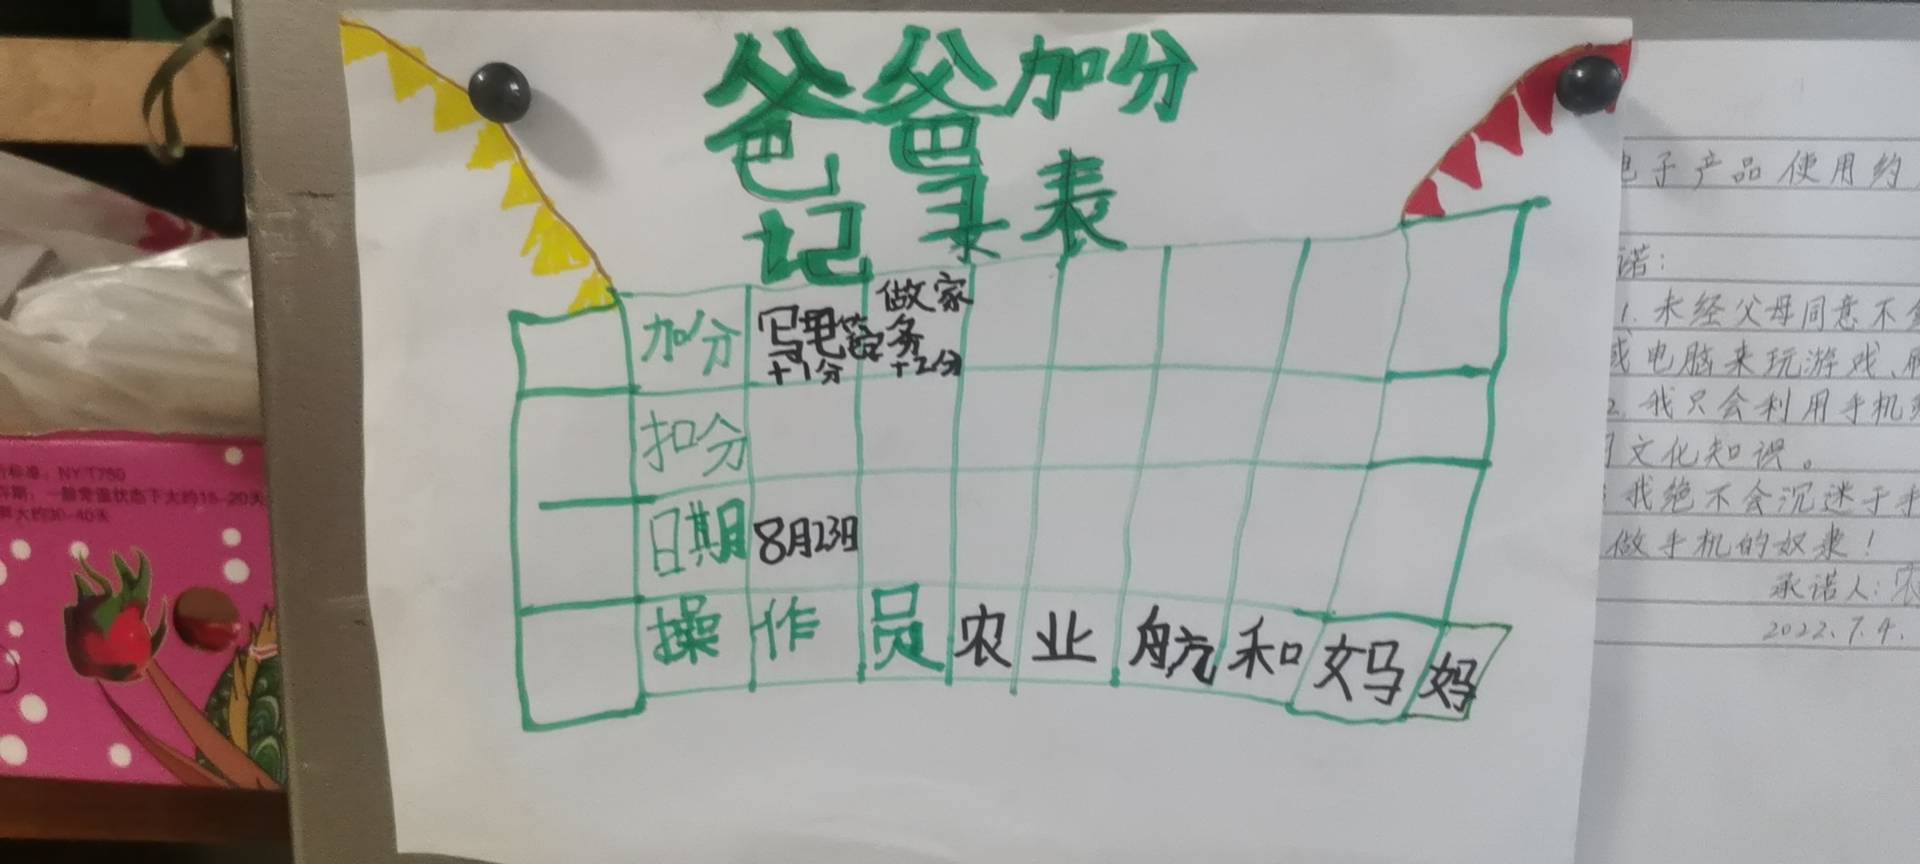 爸爸加分
记录表
加分 写毛笔字+1分 做家务+2分
扣分
日期 8月23日
操作员 农业航和妈妈
电子产品使用约
诺:
1.未经父母同意不
或电脑来玩游戏、
2.我只会利用手机
文化知识。
我绝不会沉迷于手
做手机的奴隶!
承诺人:农
2022.7.4.
NY/T750
一般常温状态下大约15-20天
大约30-40天